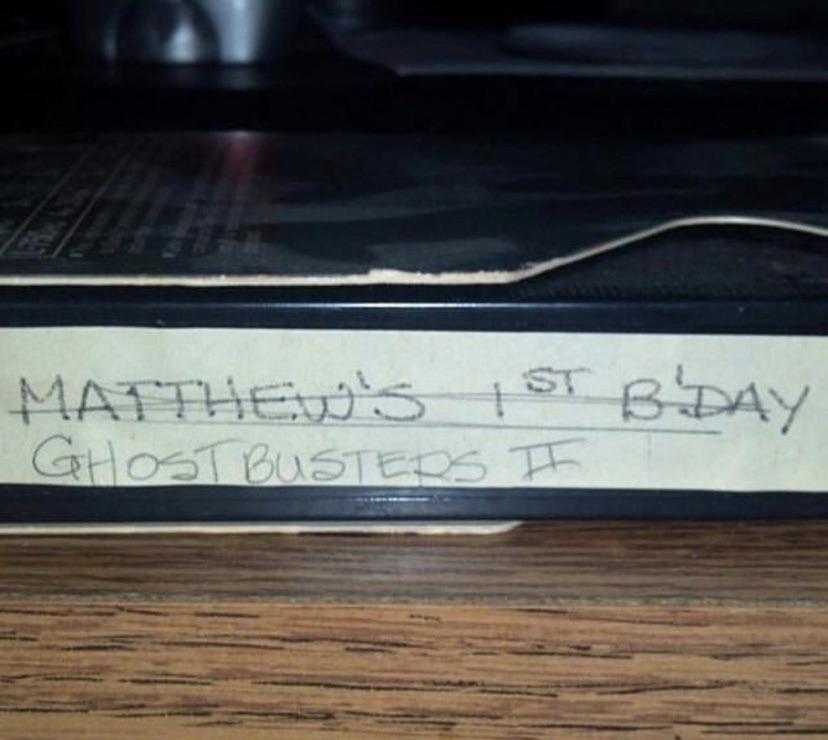 MATTHEW'S 1ST B'DAY
GHOSTBUSTERS II